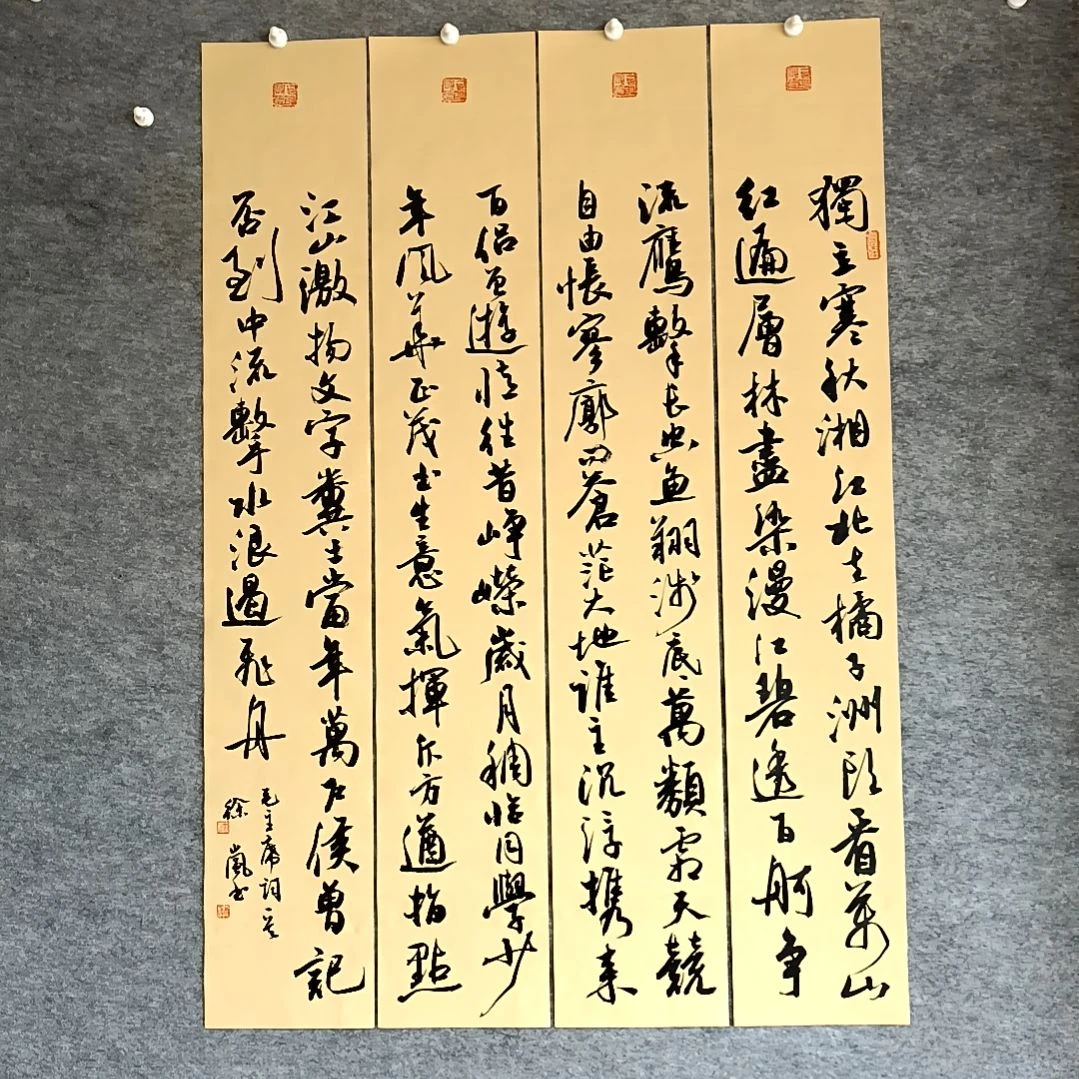 獨立寒秋湘江北去橘子洲頭看萬山
紅遍層林盡染漫江碧透百舸争
流鷹擊長空魚翔淺底萬類霜天競
自由悵寥廓問蒼茫大地誰主沉浮携来
百侣曾遊憶往昔崢嶸歲月稠恰同學少
年風華正茂書生意氣揮斥方遒指點
江山激揚文字糞土當年萬户侯曾記
否到中流擊水浪遏飛舟
毛主席詞一首
徐嵐書